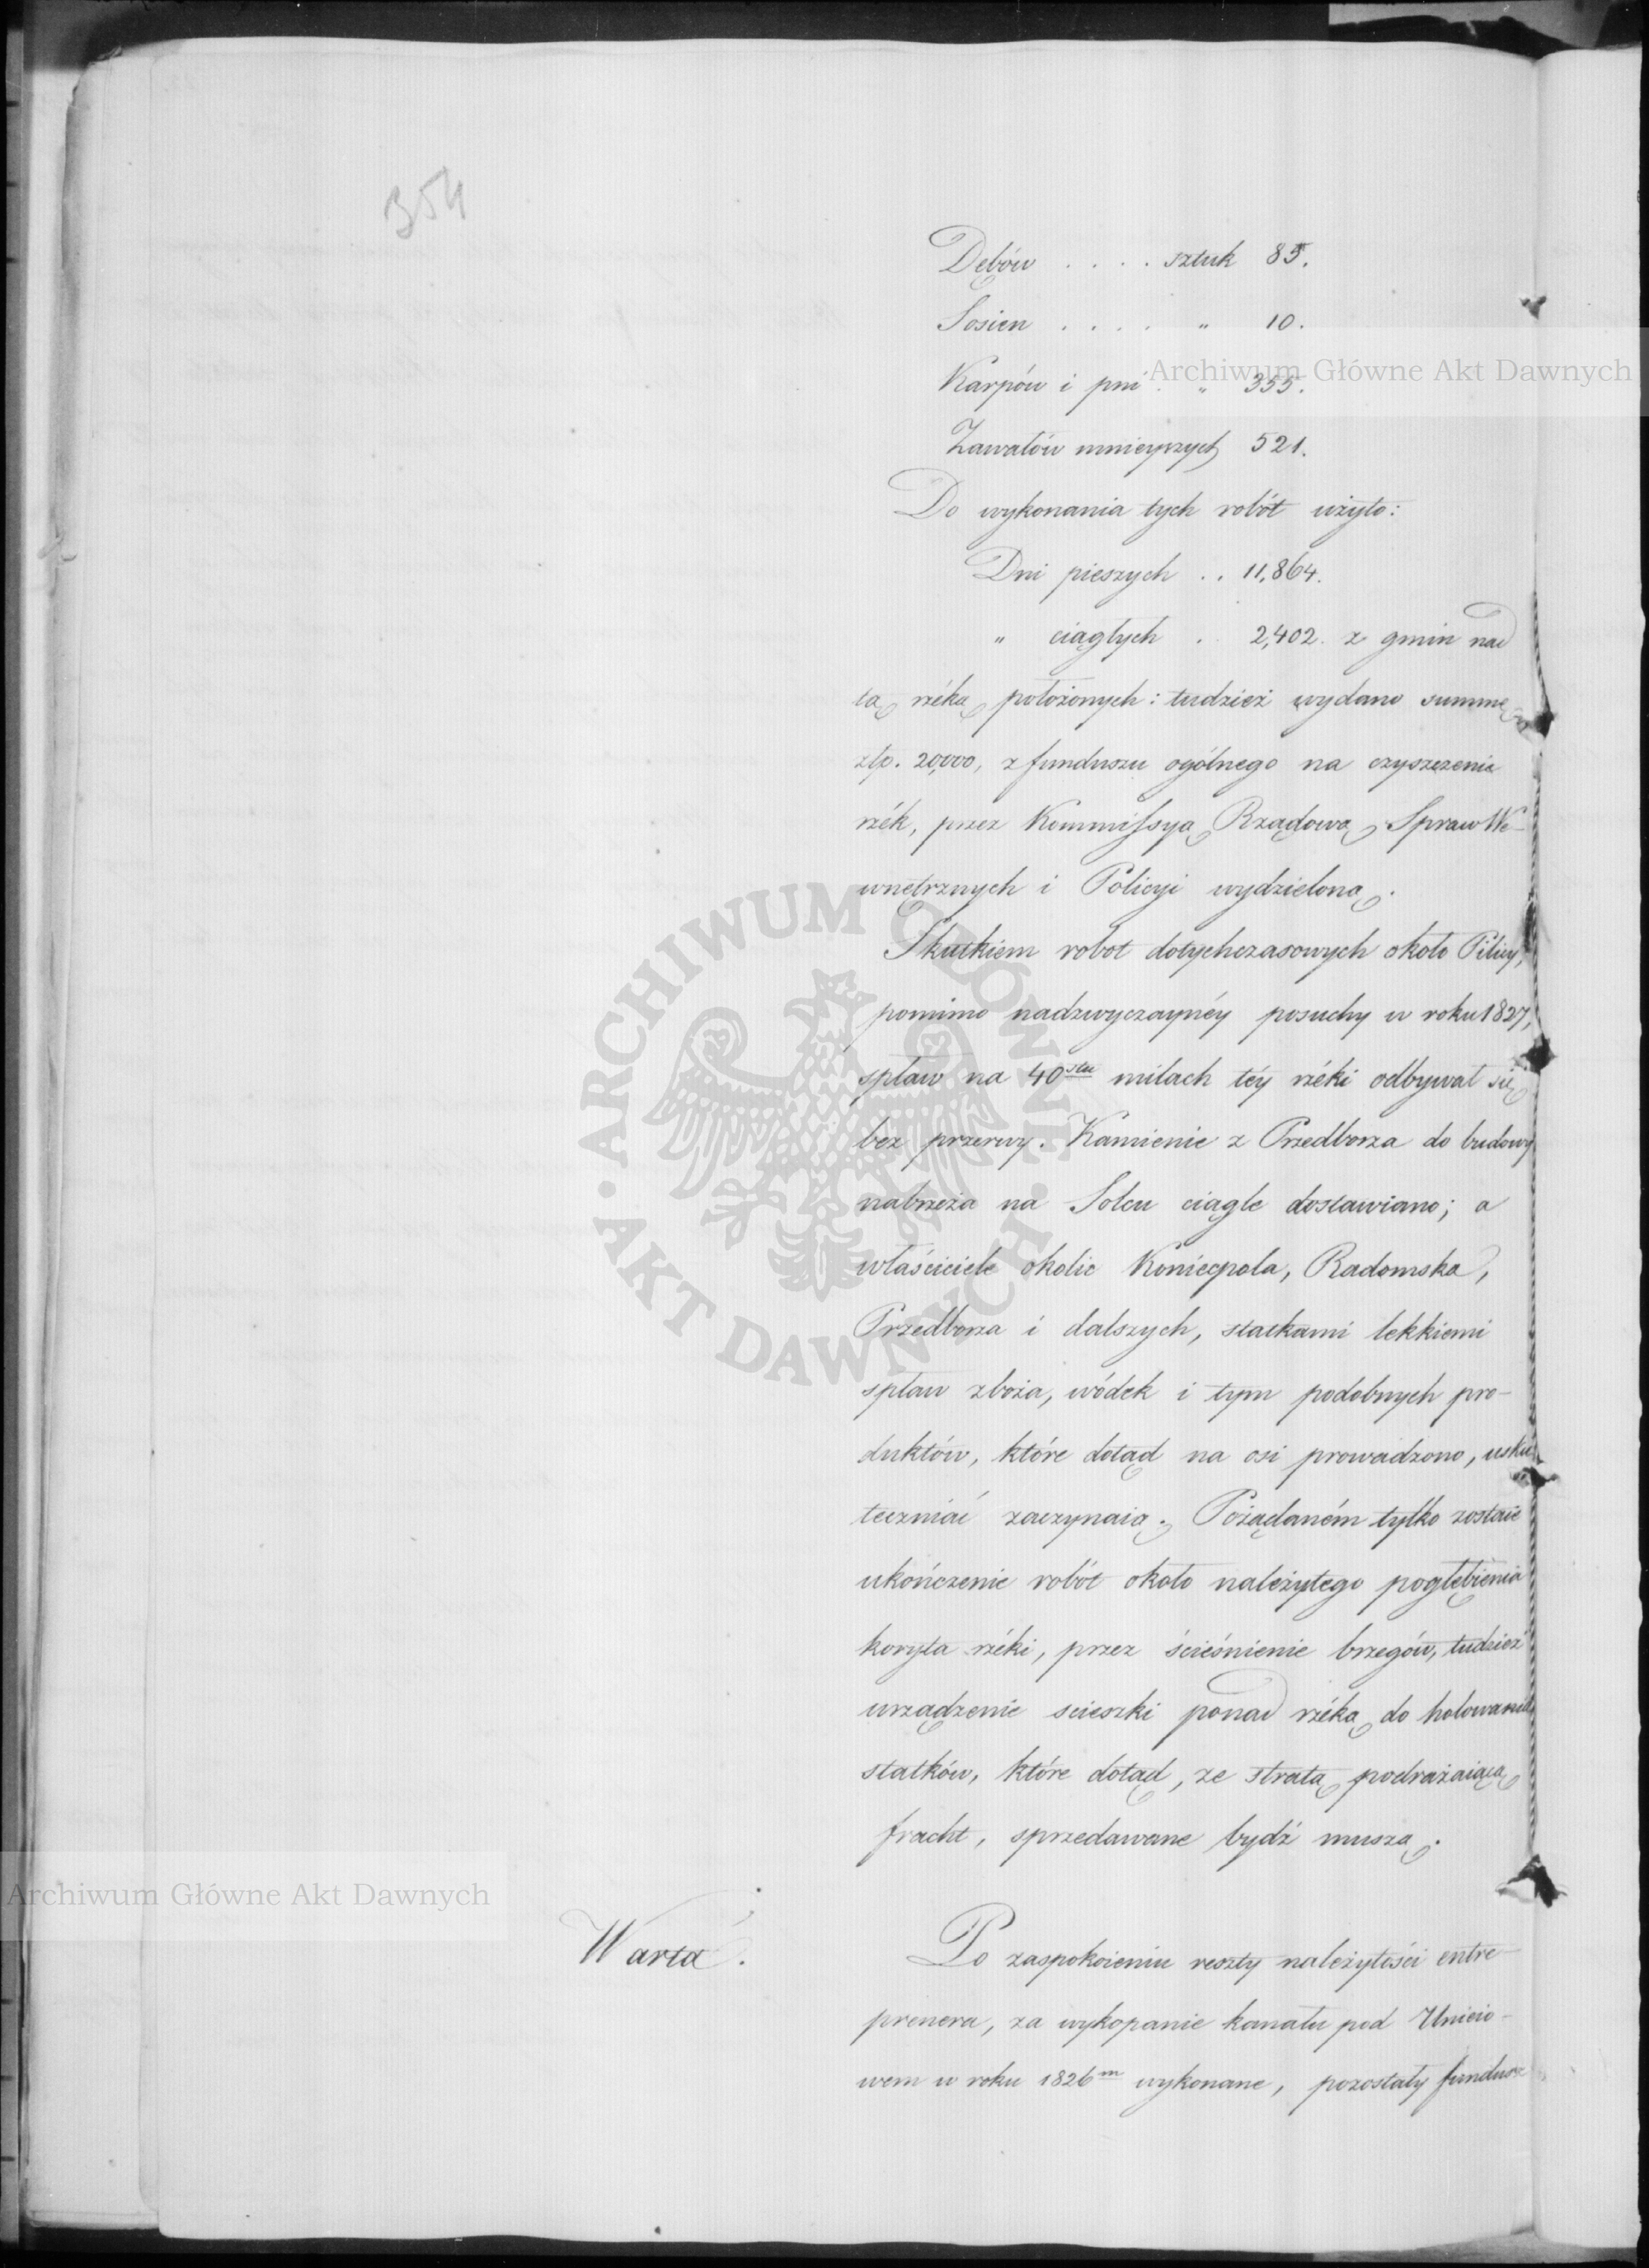 354
Dębów . . . . sztuk 85.
Sosien . . . . " 10.
Karpów i pni . " 355.
Zawałów mnieyszych 521.
Do wykonania tych robót użyto:
Dni pieszych . . 11,864.
" ciągłych . 2,402. z gmin nad
tą rzéką położonych: tudzież wydano summę
złp. 20,000, z funduszu ogólnego na czyszczenie
rzék, przez Kommissyą Rządową Spraw We-
wnętrznych i Policyi wydzieloną.
Skutkiem robot dotychczasowych około Pilicy,
pomimo nadzwyczaynéy posuchy w roku 1827,
spław na 40stu milach téy rzéki odbywał się
bez przerwy. Kamienie z Przedborza do budowy
nabrzeża na Solcu ciągle dostawiano; a
właściciele okolic Koniecpola, Radomska,
Przedborza i dalszych, statkami lekkiemi
spław zboża, wódek i tym podobnych pro-
duktów, które dotąd na osi prowadzono, usku
teczniać zaczynaią. Pożądaném tylko zostaie
ukończenie robót około należytego pogłębienia
koryta rzéki, przez ścieśnienie brzegów, tudzież
urządzenie scieszki ponad rzéką do holowania
statków, które dotąd, ze stratą podrażaiącą
fracht, sprzedawane bydź muszą.
Warta.
Po zaspokoieniu reszty należytości entre-
prenera, za wykopanie kanału pod Unieio-
wem w roku 1826m wykonane, pozostały fundusz
Archiwum Główne Akt Dawnych
Archiwum Główne Akt Dawnych
ARCHIWUM GŁÓWNE AKT DAWNYCH